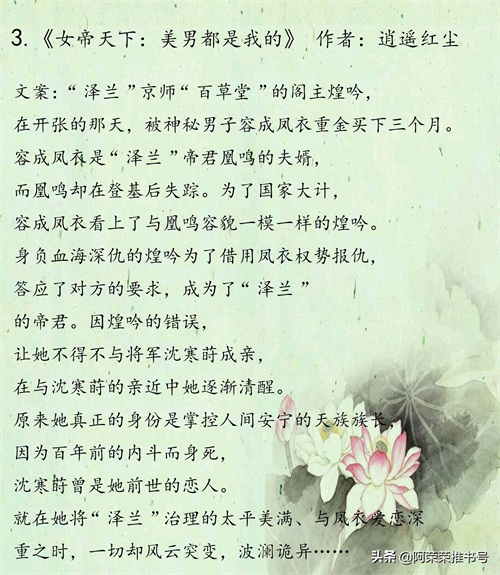 3.《女帝天下：美男都是我的》 作者：逍遥红尘
文案：“泽兰”京师“百草堂”的阁主煌吟，
在开张的那天，被神秘男子容成凤衣重金买下三个月。
容成凤衣是“泽兰”帝君凰鸣的夫婿，
而凰鸣却在登基后失踪。为了国家大计，
容成凤衣看上了与凰鸣容貌一模一样的煌吟。
身负血海深仇的煌吟为了借用凤衣权势报仇，
答应了对方的要求，成为了“泽兰”
的帝君。因煌吟的错误，
让她不得不与将军沈寒莳成亲，
在与沈寒莳的亲近中她逐渐清醒。
原来她真正的身份是掌控人间安宁的天族族长，
因为百年前的内斗而身死，
沈寒莳曾是她前世的恋人。
就在她将“泽兰”治理的太平美满、与凤衣爱恋深
重之时，一切却风云突变，波澜诡异……
头条 @阿荣荣推书号